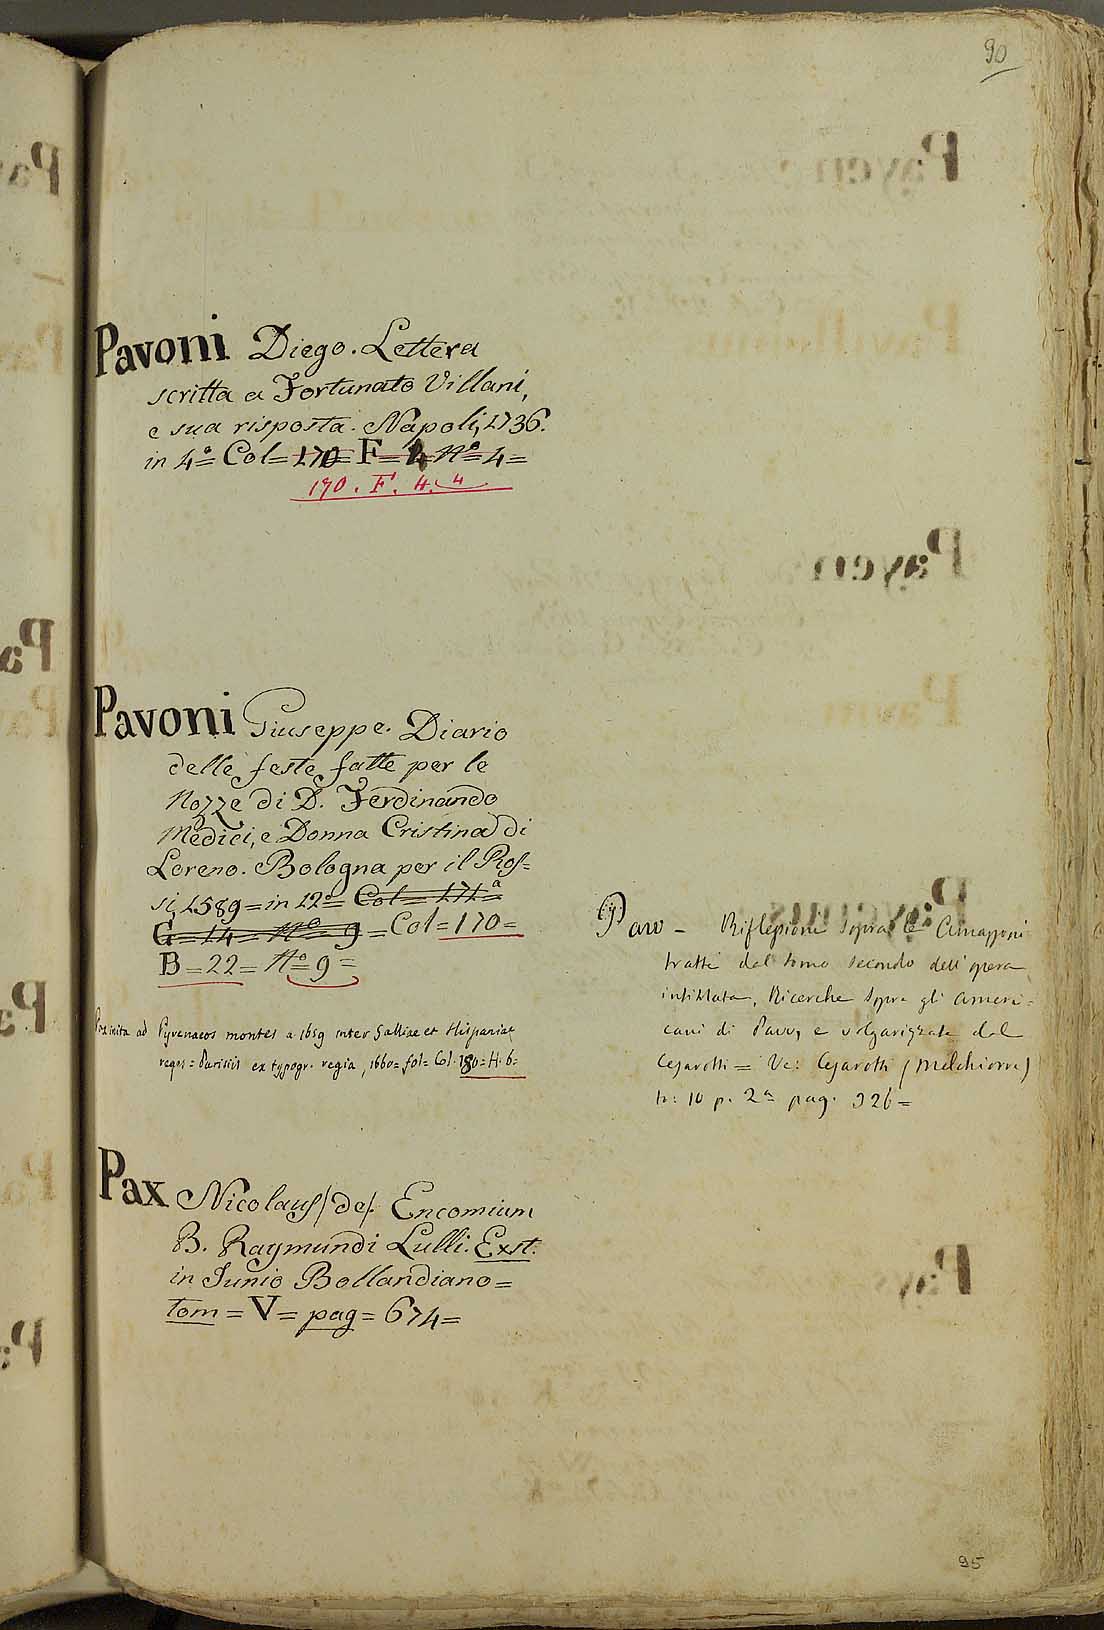 90
Pavoni Diego. Lettera
scritta a Fortunato Villani,
e sua risposta. Napoli, 1736.
in 4º= Col= 170= F= 4 Nº= 4=
170. F. 4. 4
Pavoni Giuseppe. Diario
delle feste fatte per le
Nozze di D. Ferdinando
Medici, e Donna Cristina di
Loreno. Bologna per il Ros=
si, 1589= in 12º= Col= 171ª
G= 14= Nº= 9= Col= 170=
B= 22= Nº 9=
Pax inita ad Pyrenaeos montes a 1659 inter Galliae et Hispaniae
reges= Parisiis ex typogr. regia, 1660= fol= Col. 180= H. 6=
Pax Nicolaus /de/. Encomium
B. Raymundi Lulli. Exst.
in Junio Bollandiano=
tom= V= pag= 674=
Paw - Riflessioni sopra le Amazzoni
tratte dal tomo secondo dell' opera
intitolata, Ricerche sopra gli Ameri=
cani di Pauw, e volgarizzate dal
Cesarotti= Ve: Cesarotti (Melchiorre)
to: 10 p. 2ª pag. 326=
95